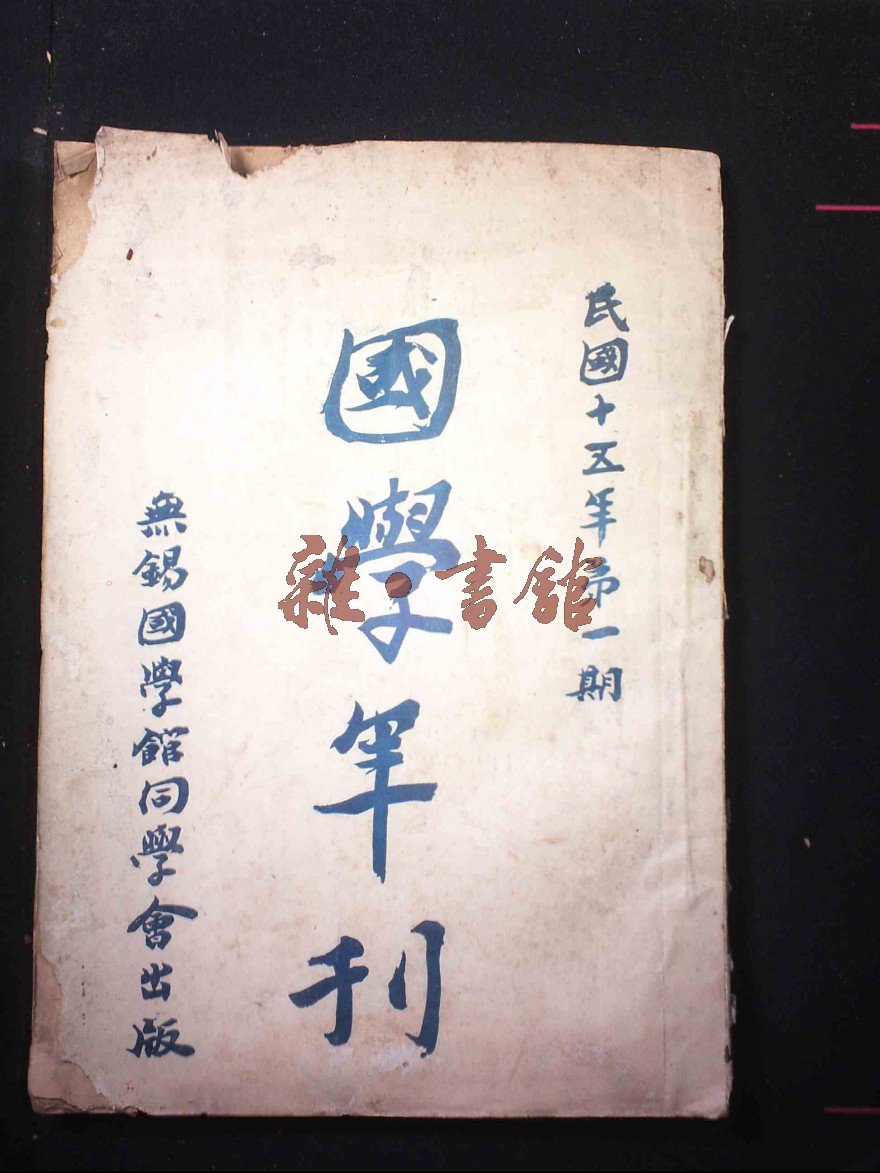 民國十五年第一期
國學年刊
無錫國學館同學會出版
雜·書館